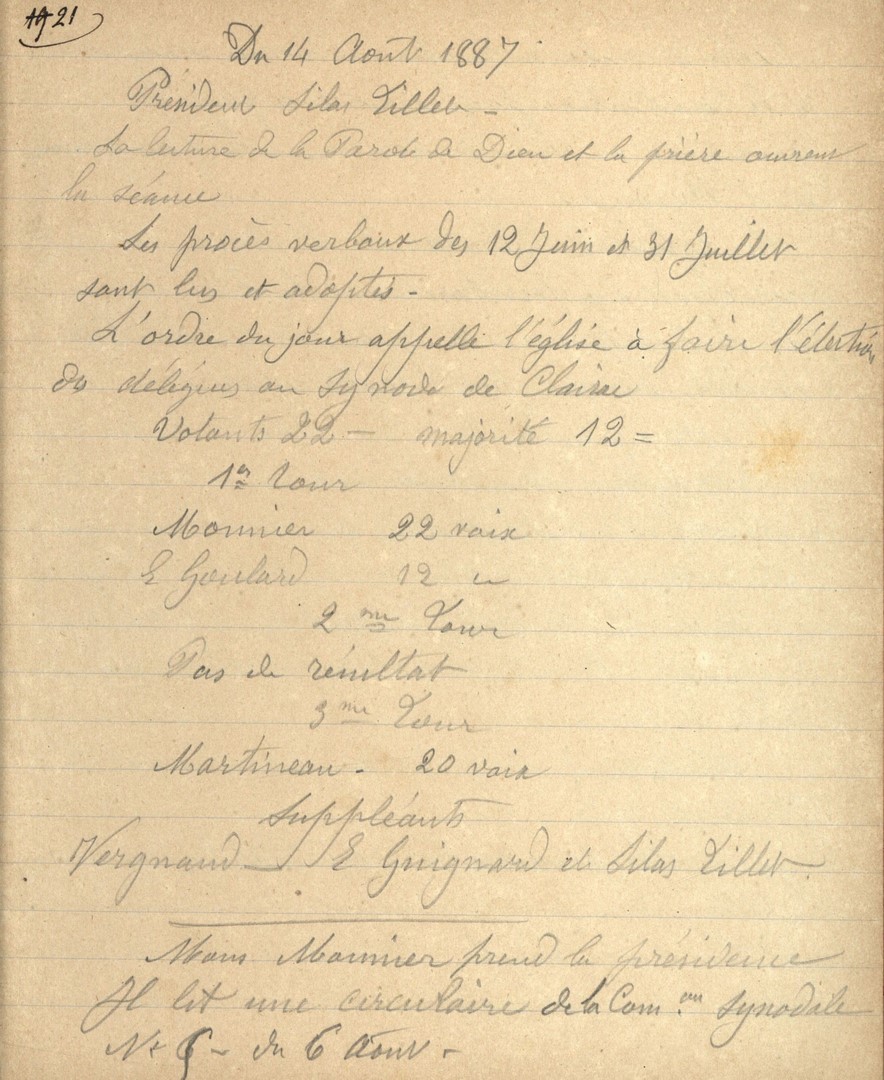 21
Du 14 Août 1887
Président Silas Tillet -
La lecture de la Parole de Dieu et la prière ouvrent
la séance
Les procès verbaux des 12 Juin et 31 Juillet
sont lus et adoptés -
L'ordre du jour appelle l'église à faire l'élection
de délégués au synode de Clairac
Votants 22 - majorité 12 =
1er tour
Monnier 22 voix
E Goulard 12 "
2me Tour
Pas de résultat
3me Tour
Martineau - 20 voix
Suppléants
Vergnaud - E Guignard et Silas Tillet
Mons Monnier prend la présidence
Il lit une circulaire de la Com.on synodale
- du 6 Août -